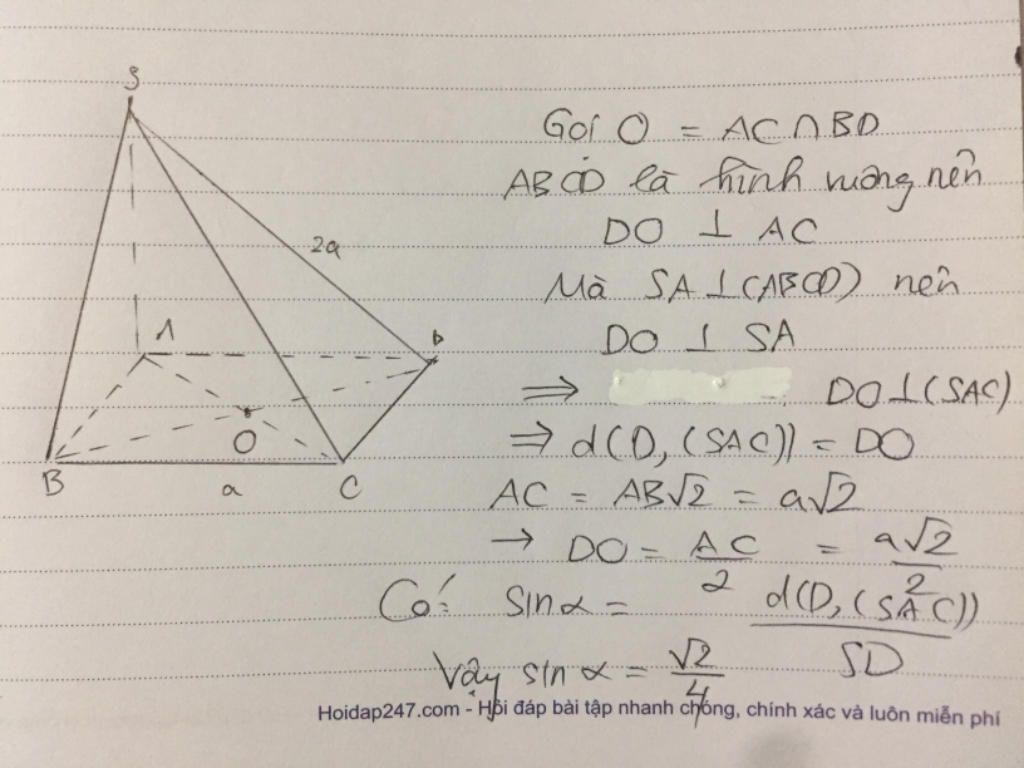 S
2a
A
D
O
B
a
C
Gọi O = AC ∩ BD
ABCD là hình vuông nên
DO ⊥ AC
Mà SA ⊥ (ABCD) nên
DO ⊥ SA
⇒ DO ⊥ (SAC)
⇒ d(D, (SAC)) = DO
AC = AB√2 = a√2
→ DO = AC/2 = a√2/2
Có: sin α = d(D, (SAC))/SD
Vậy sin α = √2/4
Hoidap247.com - Hỏi đáp bài tập nhanh chóng, chính xác và luôn miễn phí